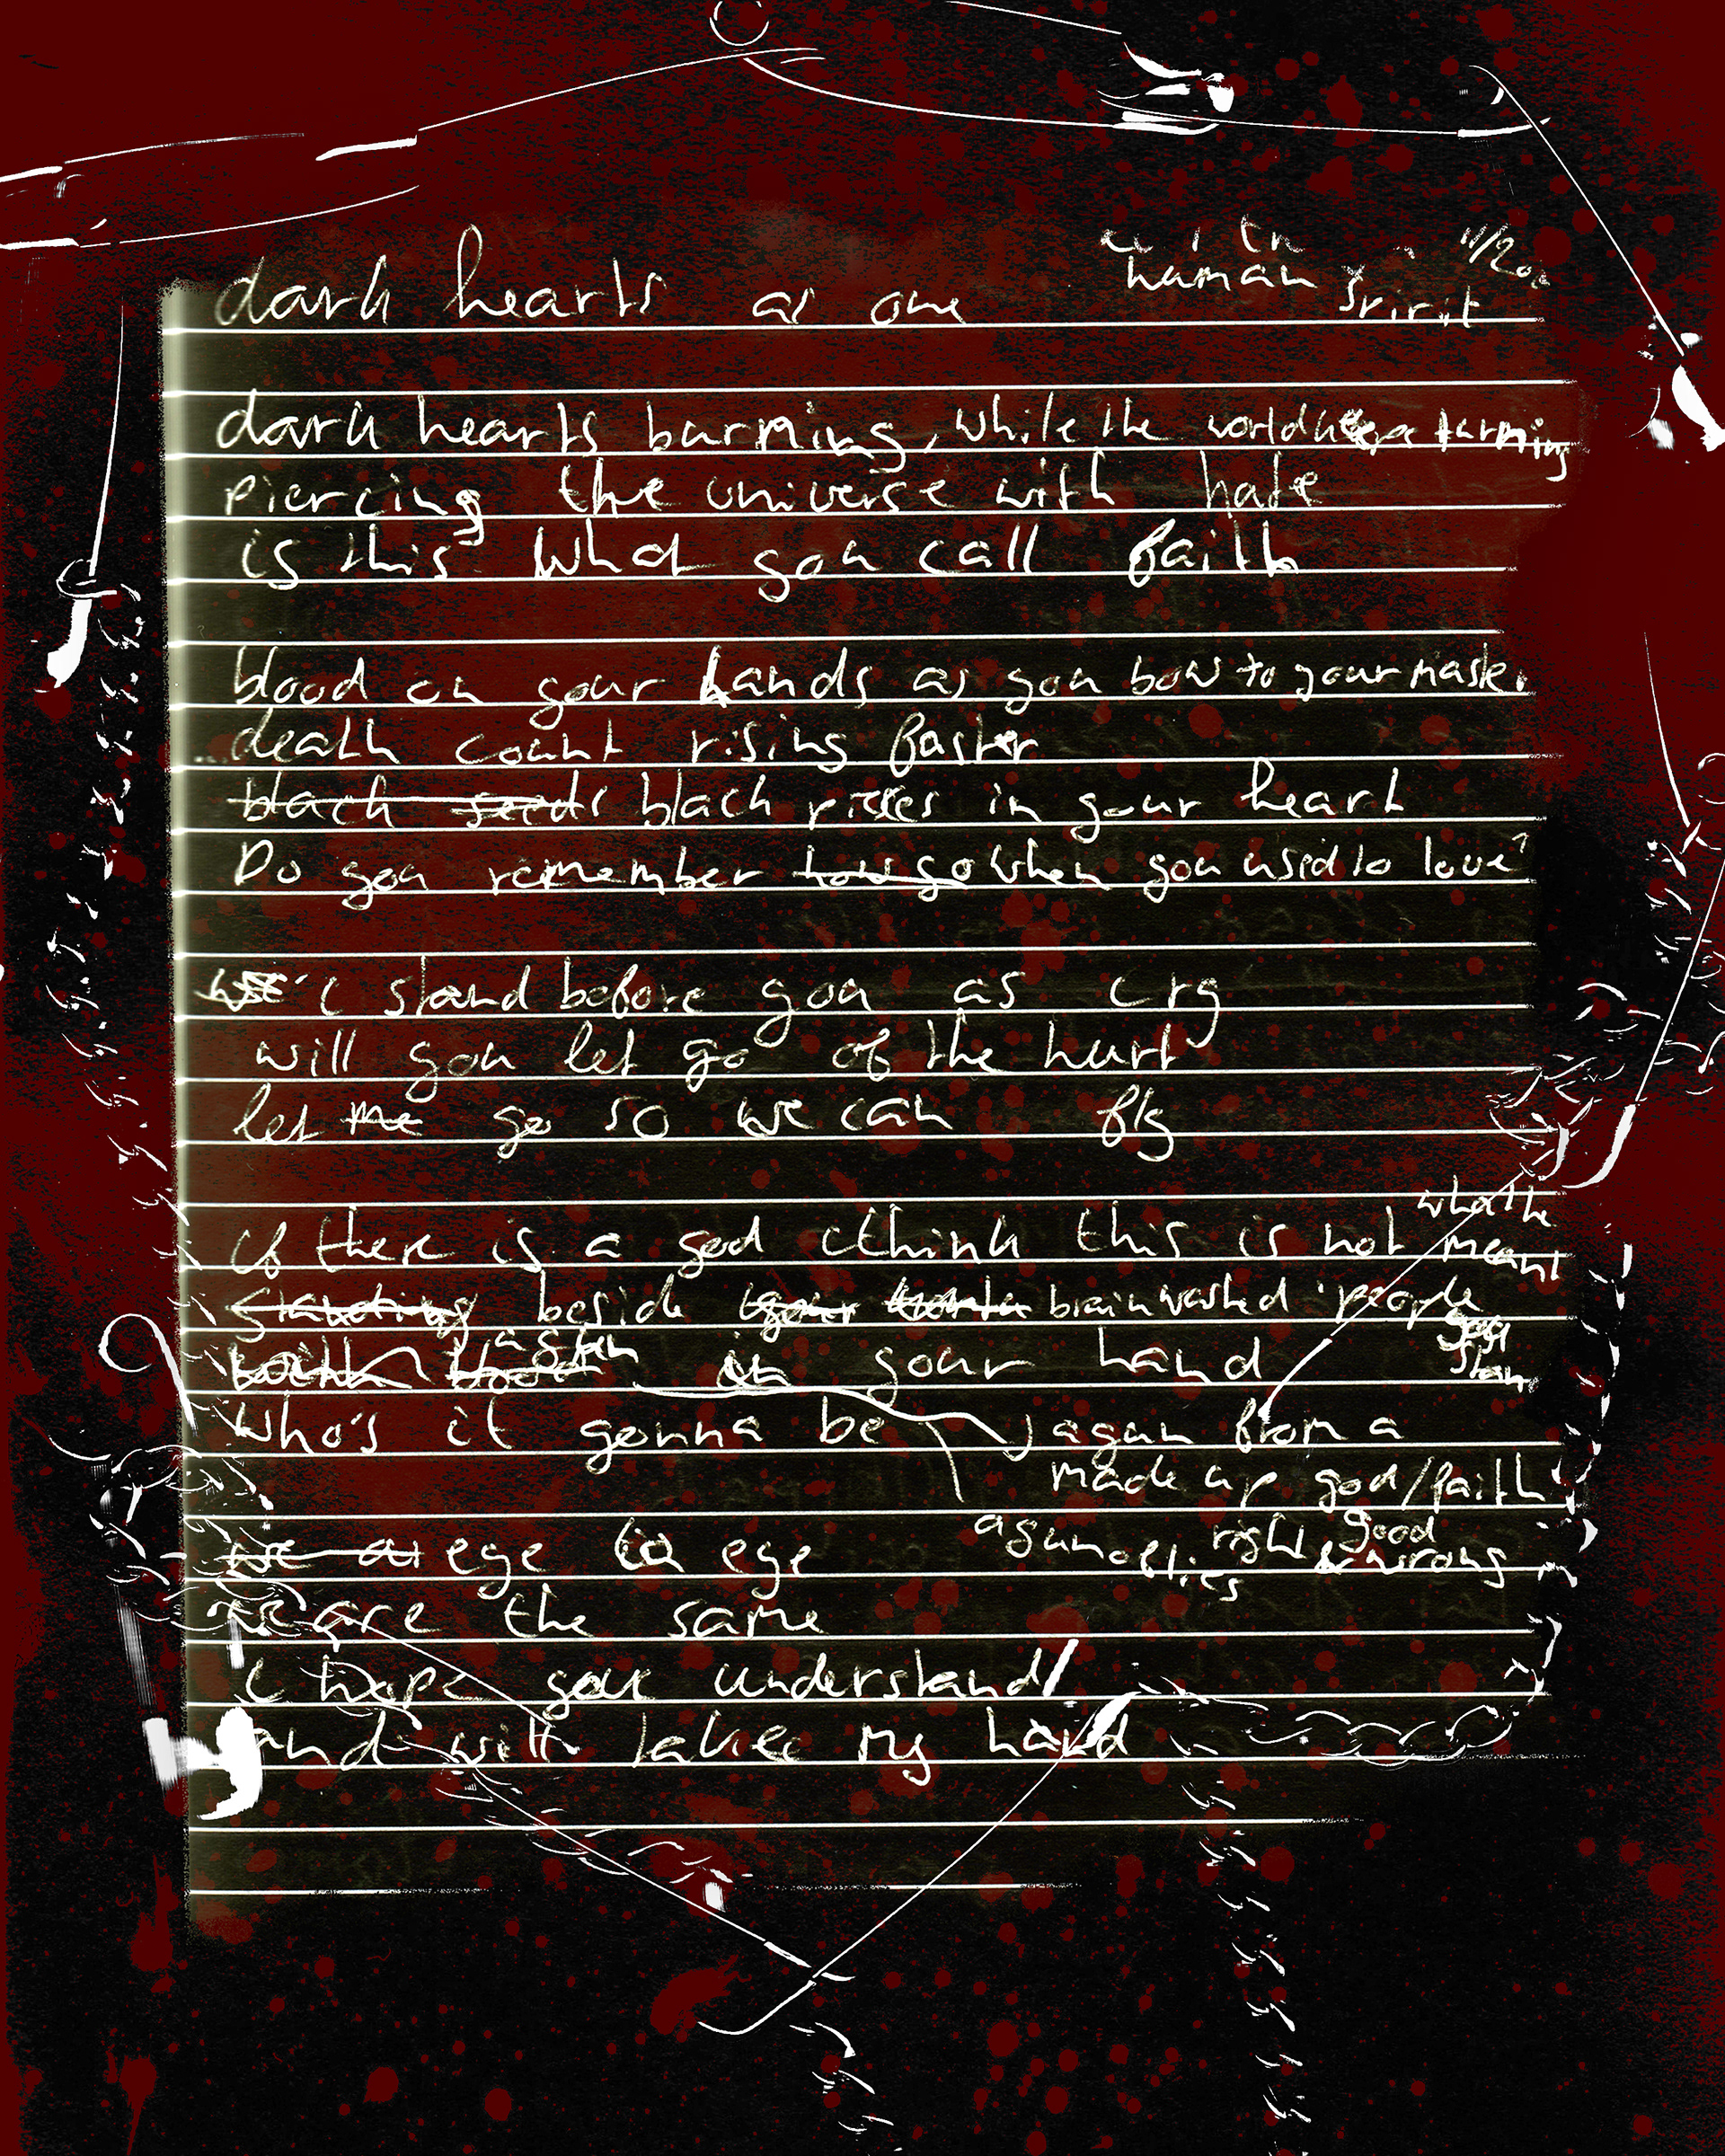 dark hearts as one
human spirit
dark hearts burning, while the world turning
piercing the universe with hate
is this what you call faith
blood on your hands as you bow to your master
death count rising faster
black seeds black rises in your heart
Do you remember how go when you used to love?
we i stand before you as cry
will you let go of the hurt
let me go so we can fly
what he
if there is a god i think this is not meant
standing beside your brainwashed people
a gun
in your hand
who's it gonna be again from a
made up god/faith
good
we are eye to eye again right & wrong
lies
we are the same
i hope you understand
and will take my hand